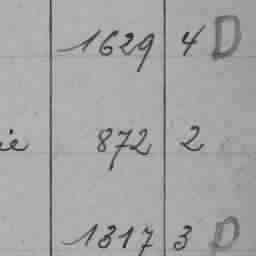 1629 4 D
ie 872 2
1317 3 D